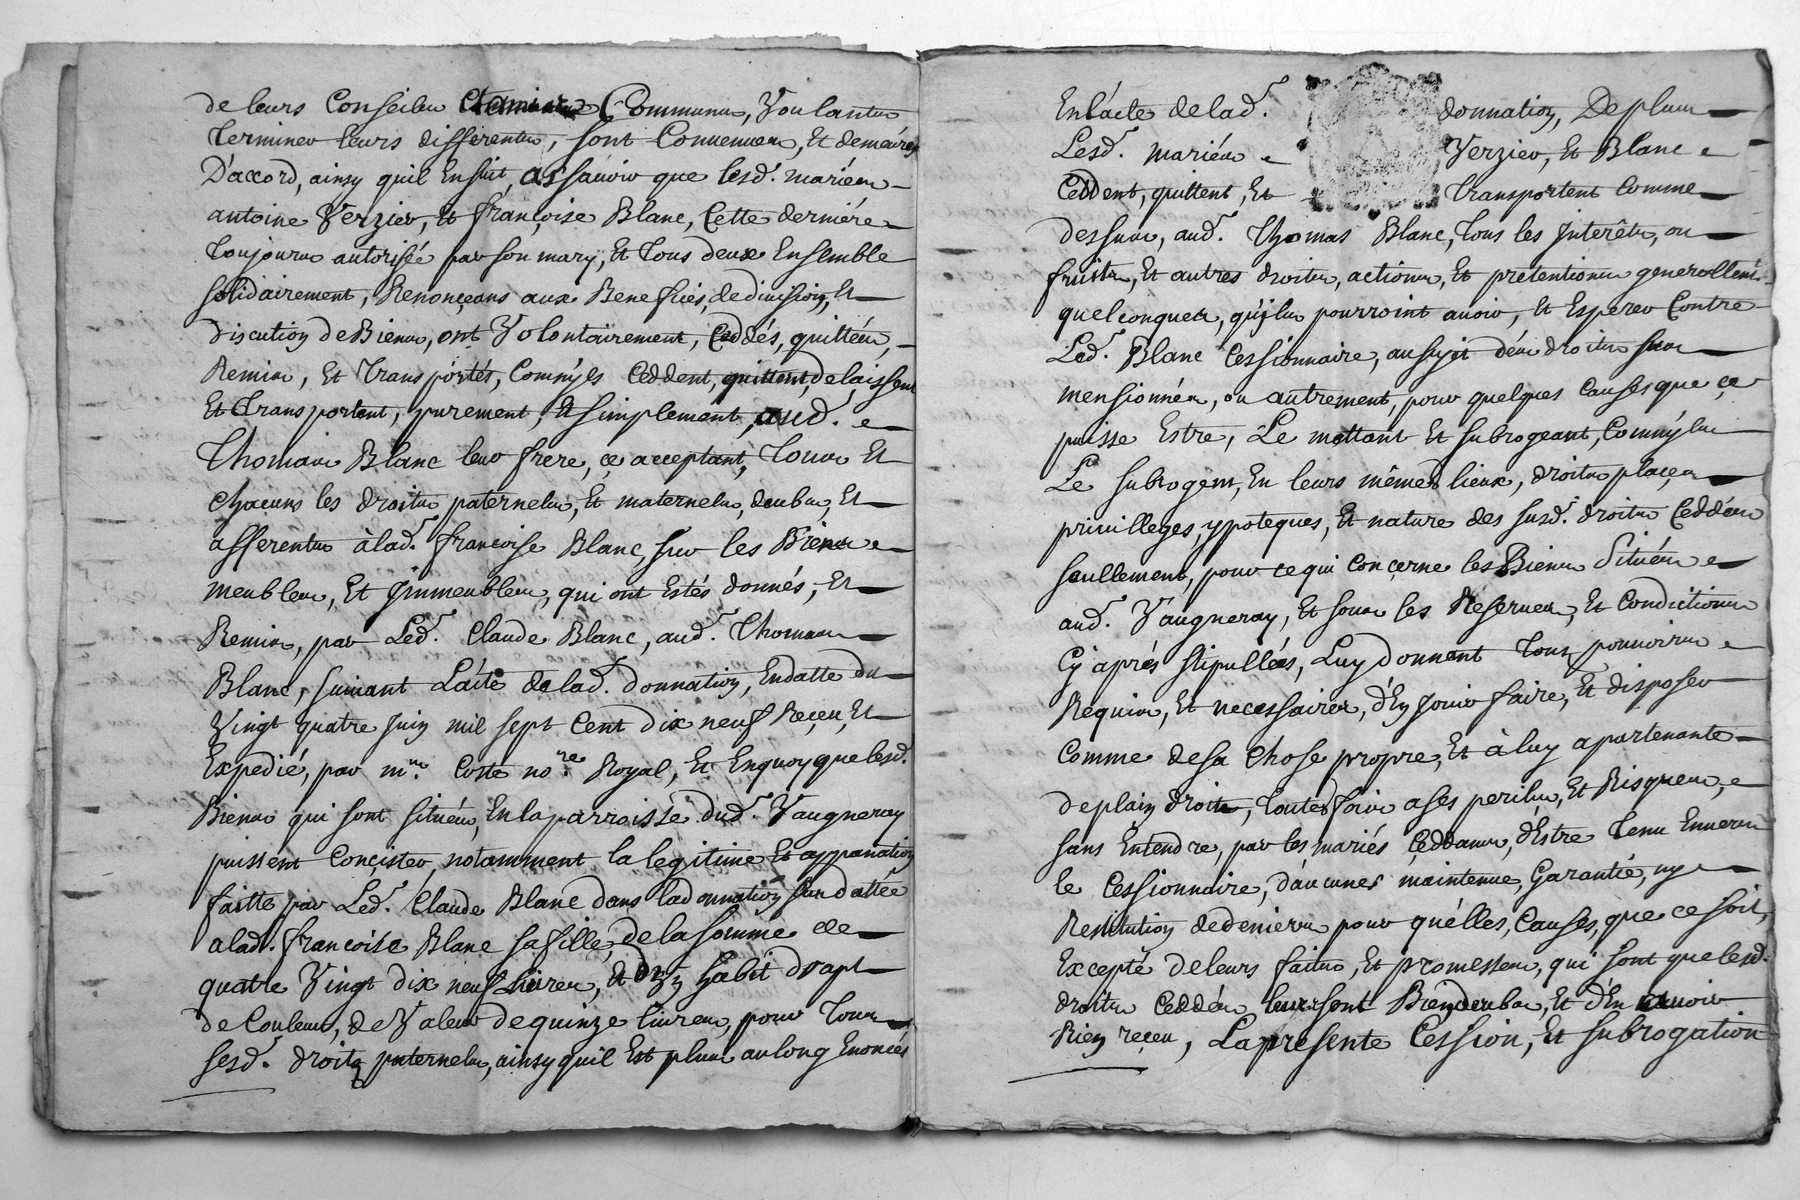 de leurs Conseilx Communs, Voulants
Terminer leurs differents, sont Convenues, Et demeurés
D'accord, ainsy quil Ensuit, assavoir que lesd. mariés
antoine Verzier, Et françoise Blanc, Cette derniére
Toujours autorisée par son mary, Et Tous deux Ensemble
solidairement, Renonçeans aux Benefices, de division, Et
discution de Biens, ont Volontairement, Ceddés, quittés,
Remis, Et Transportés, Comm'yls Ceddent, quittent, delaissent
Et Transportent, purement, Et simplement, aud.
Thomas Blanc leur frere, ce acceptant, Tous Et
chacuns les droits paternels, Et maternels, deubs, Et
afferents à lad. françoise Blanc, sur les Biens
meubles, Et Jmmeubles, qui ont Estés donnés, Et
Remis, par Led. Claude Blanc, aud. Thomas
Blanc, suivant L'aite de lad. donnation, En datte du
Vingt quatre Juin mil sept Cent dix neuf Reçeu, Et
Expedié, par me. Coste nore. Royal, Et En quoy que lesd.
Biens qui sont situés, En la parroisse dud. Vaugneray
puissent Conçister, notamment la legitime Et appanation
faitte par Led. Claude Blanc dans la donnation sus dattée
a lad. françoise Blanc sa fille, de la somme de
quatre Vingt dix neuf Livres, Et d'Un habit drapt
de Couleur, de Valeur de quinze livres, pour Tous
sesd. droits paternels, ainsy quil Est plus au long Enoncés
En l'aite de lad. donnation, De plus
Lesd. mariés Verzier, Et Blanc
Ceddent, quittent, Et Transportent Comme
dessus, aud. Thomas Blanc, Tous les Jnterêts, ou
fruits, Et autres droits, actions, Et pretentions generallemt.
quelconques, qu'jls pourroint avoir, Et Esperer Contre
Led. Blanc Cessionnaire, au sujet dés droits sus
mensionnés, ou autrement, pour quelques Causes que çe
puisse Estre, Le mettant Et subrogeant, Comm'yls
Le subrogent, En leurs mêmes lieux, droits places
privilleges, ypoteques, Et nature des susd. droits Ceddés
seullement, pour ce qui Conçerne les Biens Situés
aud. Vaugneray, Et sous les Reserves, Et Condictions
Cy aprés stipullées, Luy donnent Tous pouvoirs
Requis, Et necessaires, d'En Jouir faire, Et disposer
Comme de sa Chose propre, Et à luy apartenante
de plain droit, Toutesfois a ses perils, Et Risques,
sans Entendre, par les mariés Çeddans, d'Estre Tenu Envers
le Cessionnaire, d'aucunes maintenue, Garantie, ny
Restitution de deniers pour qu'elles, Causes, que ce soit,
Excepté de leurs faits, Et promesses, qui sont que lesd.
droits Ceddés leurs sont Bien deubs, Et d'En avoir
Rien reçeu, La presente Cession, Et subrogation